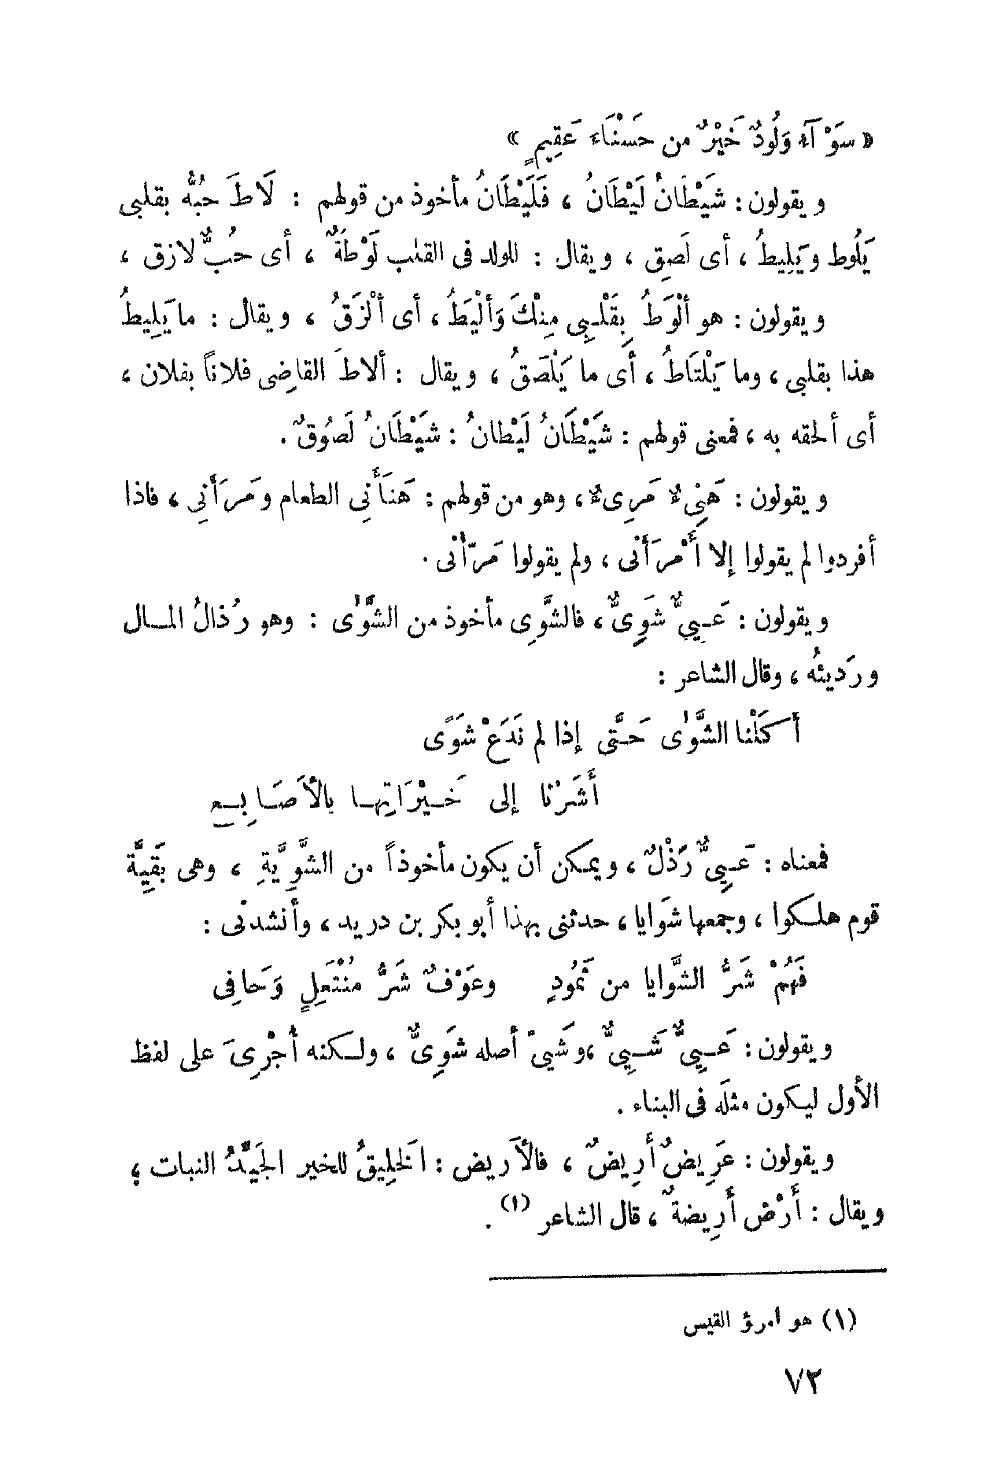 « سَوْآءُ وَلُودٌ خَيْرٌ من حَسْنَاءَ عَقِيمٍ »
ويقولون : شَيْطَانٌ لَيْطَانُ ، فَلَيْطَانُ مأخوذ من قولهم : لَاطَ حُبُّه بقلبى
يَلُوط ويَلِيطُ ، أى لَصِق ، ويقال : للولد فى القلب لَوْطَةٌ ، أى حُبٌّ لازق ،
ويقولون : هو ألْوَطُ بِقَلْبِى مِنْكَ وَألْيَطُ ، أى ألْزَقُ ، ويقال : ما يَلِيطُ
هذا بقلبى ، وما يَلْتَاطُ ، أى ما يَلْصَقُ ، ويقال : ألاطَ القاضِى فلاناً بفلان ،
أى ألحقه به ، فمعنى قولهم : شَيْطَانُ لَيْطانُ : شَيْطَانُ لَصُوقٌ .
ويقولون : هَنِىءٌ مَرِىءٌ ، وهو من قولهم : هَنَأَنِى الطعام ومَرَأَنِى ، فاذا
أفردوا لم يقولوا إلا أَمْرَأَنى ، ولم يقولوا مَرّأنى .
ويقولون : عَيِىٌّ شَوِىٌّ ، فالشَّوِى مأخوذ من الشَّوَى : وهو رُذالُ المال
ورَديئُه ، وقال الشاعر :
أَكَلْنا الشَّوَى حَتَّى إذا لم نَدَعْ شَوًى
أَشَرْنا إلى خَيْرَاتِها بالأَصَابِع
فمعناه : عَيِىٌّ رَذْلٌ ، ويمكن أن يكون مأخوذاً من الشَّوِيَّةِ ، وهى بَقِيَّة
قوم هلكوا ، وجمعها شَوَايا ، حدثنى بهذا أبو بكر بن دريد ، وأنشدنى :
فَهُمْ شَرُّ الشَّوَايا من ثَمُودٍ وعَوْفٌ شَرُّ مُنْتَعِلٍ وَحَافِى
ويقولون : عَيِىٌّ شَيِىٌّ ، وشَيىّ أصله شَوِىٌّ ، ولكنه أُجْرِىَ على لفظ
الأول ليكون مثلَه فى البناء .
ويقولون : عَرِيضٌ أَرِيضٌ ، فالأَريض : الخلِيقُ للخير الجَيِّدُ النبات ؛
ويقال : أَرْض أَرِيضةٌ ، قال الشاعر (١) .
(١) هو امرؤ القيس
٧٢